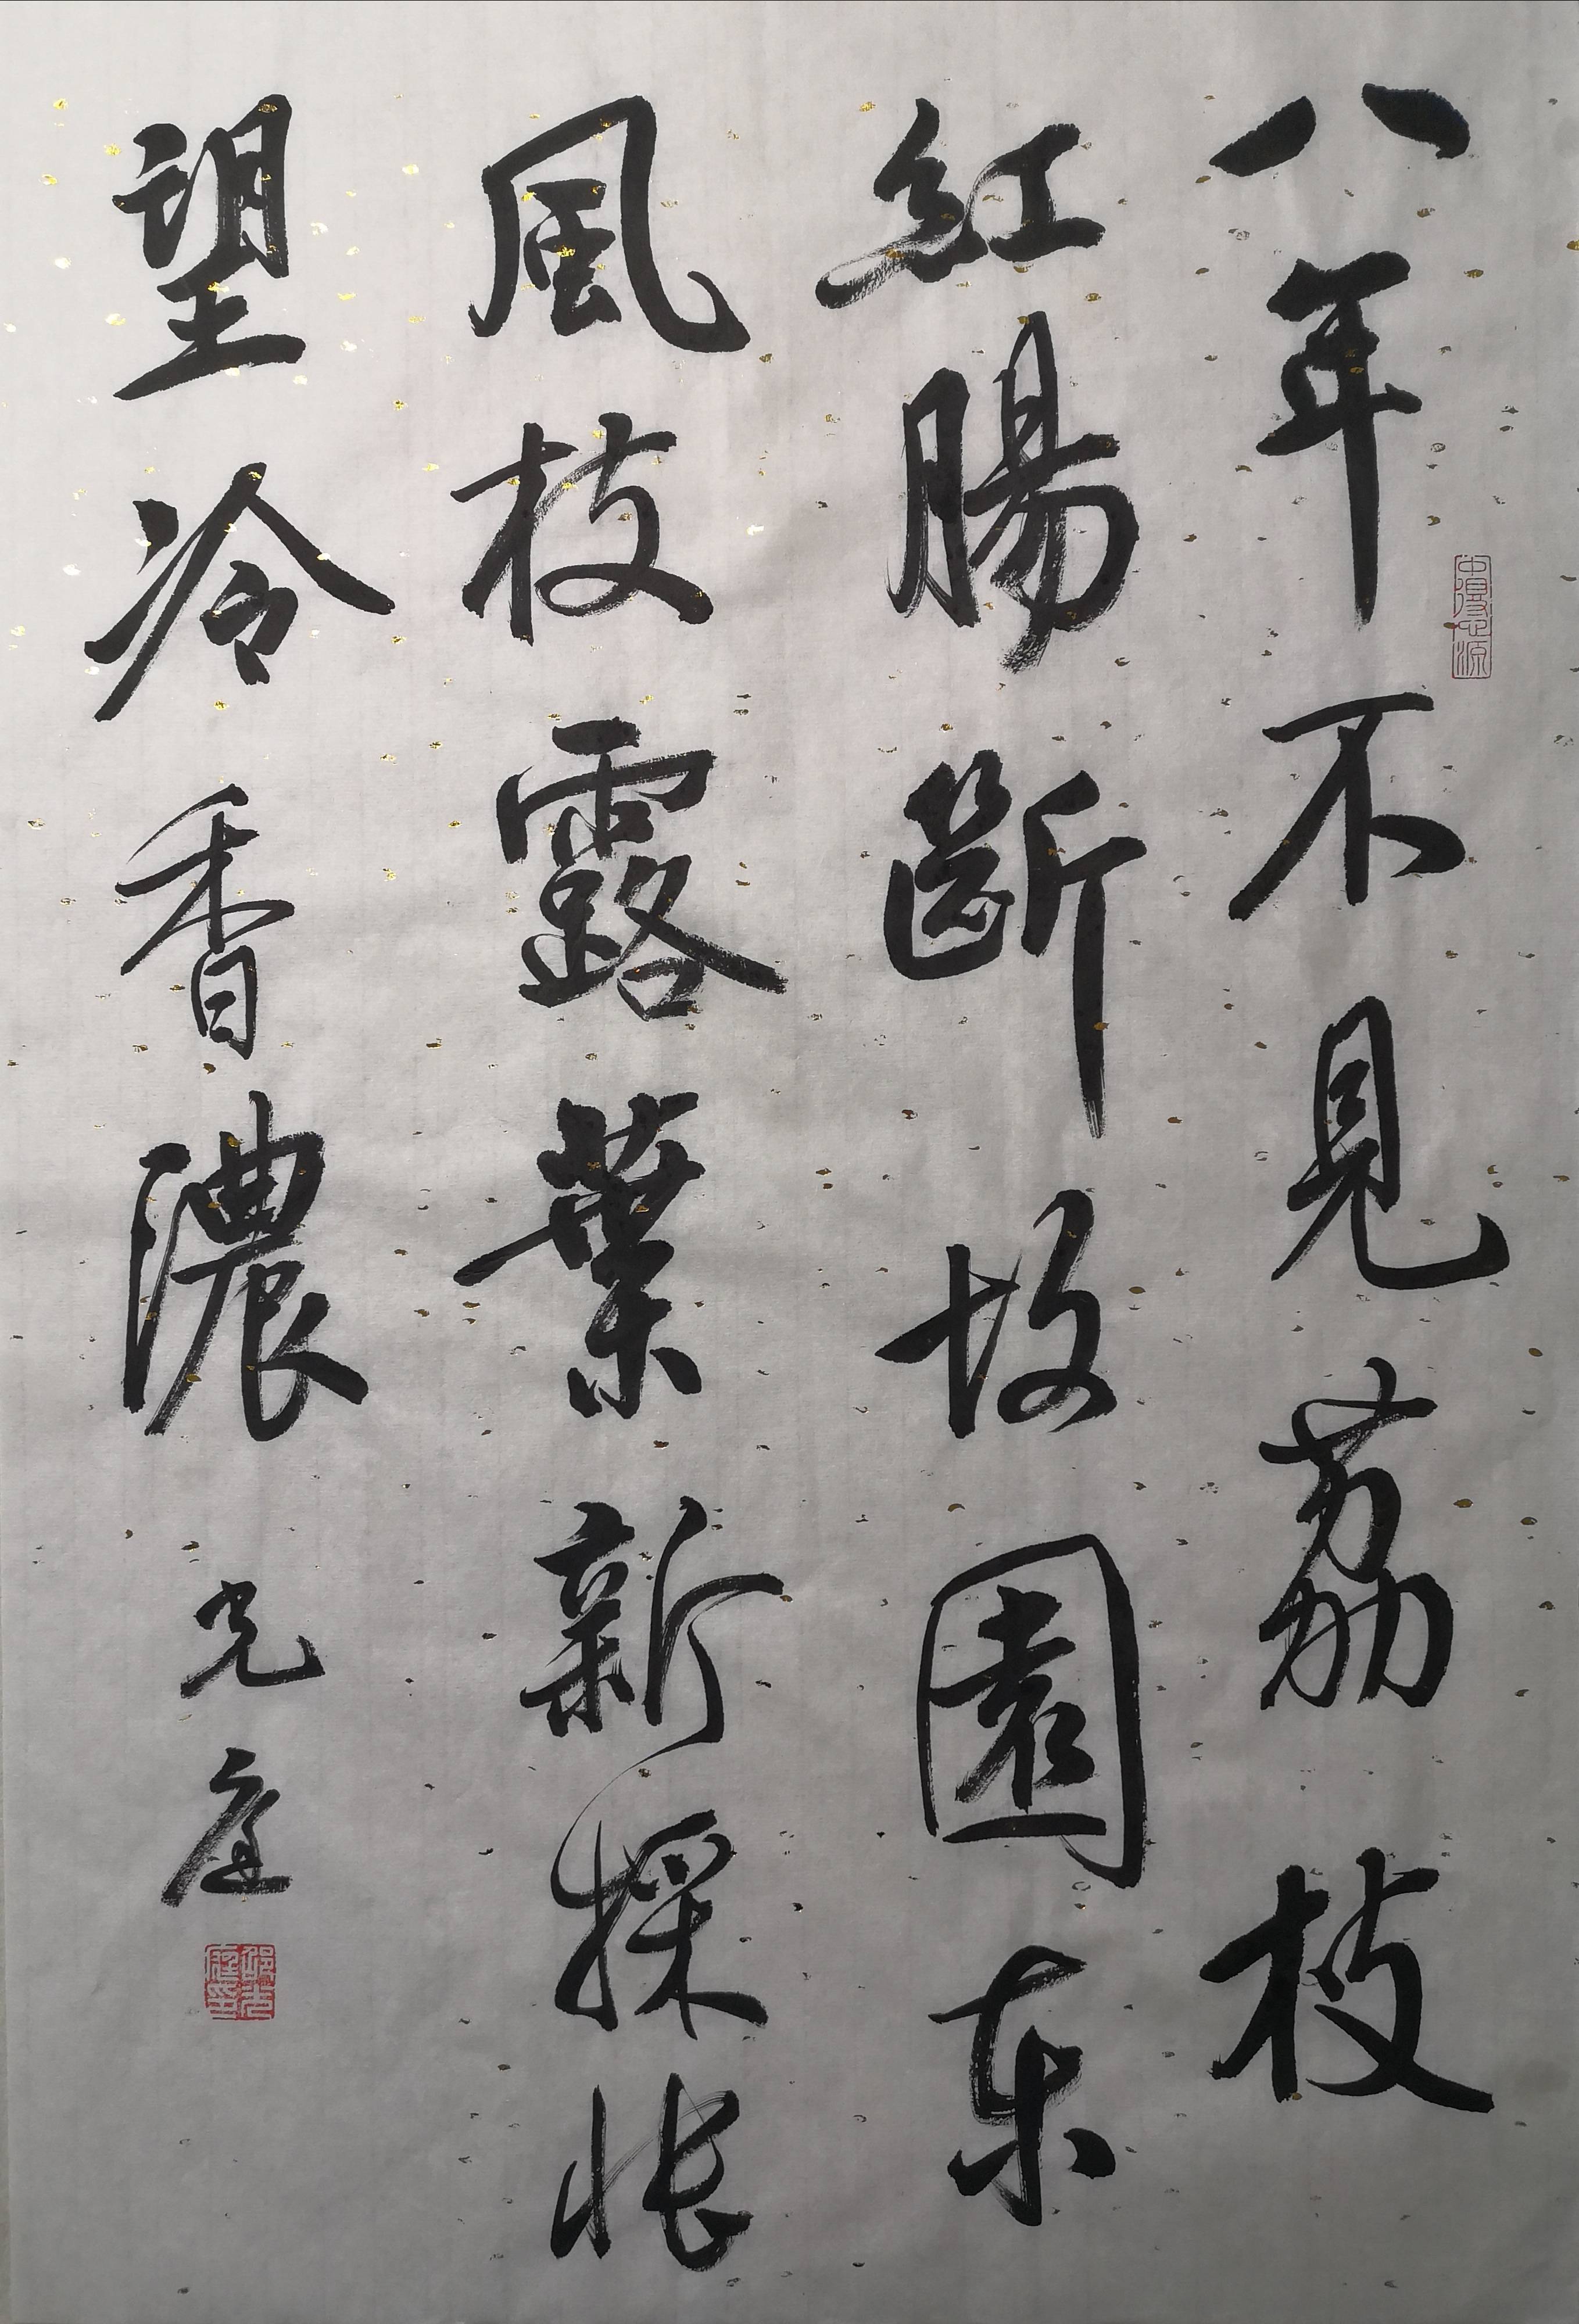 八年不見荔枝
紅腸斷故園东
風枝露葉新採悵
望冷香濃
光庭